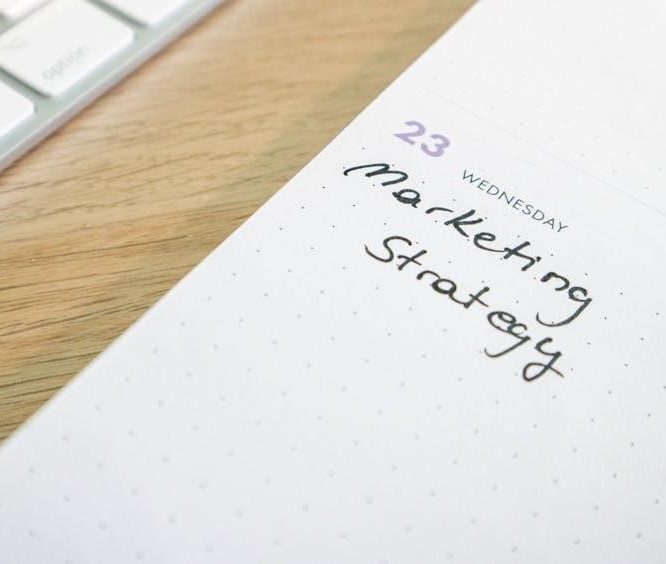 option
23 WEDNESDAY
Marketing
Strategy